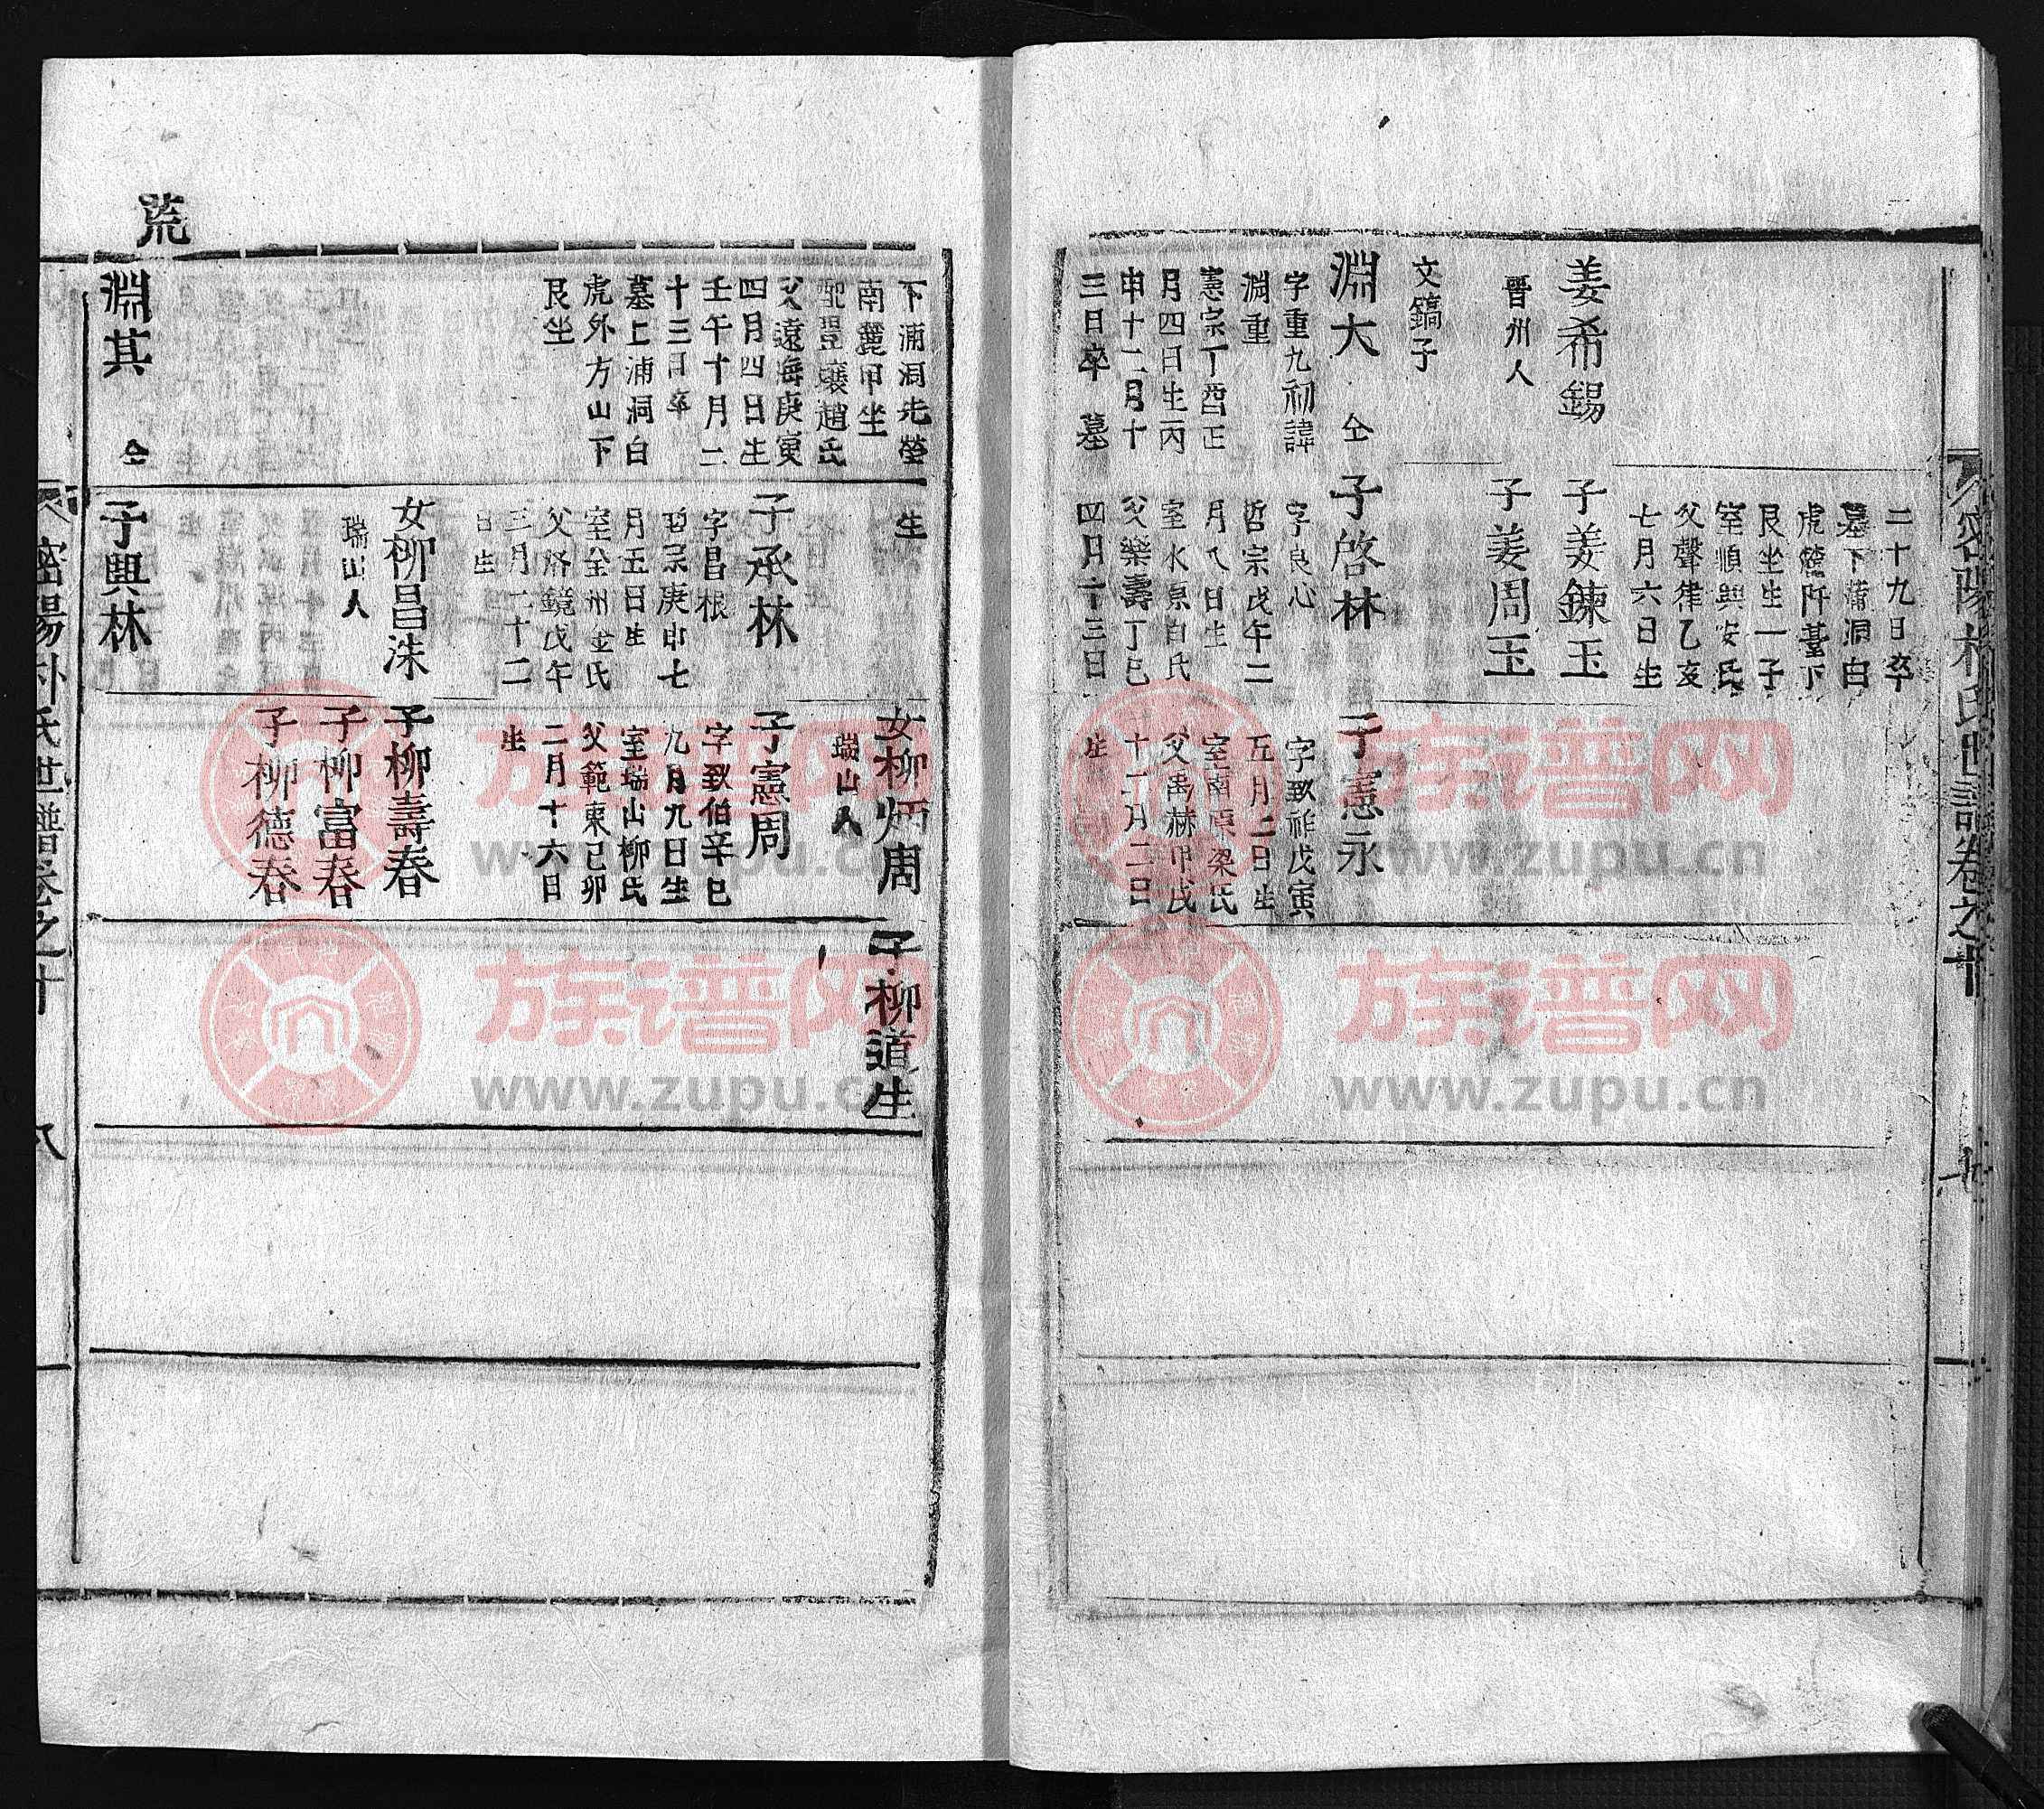 密陽朴氏世譜卷之十
姜希錫
晋州人
文鎬子
淵大 仝
字重九初諱
淵重
憲宗丁酉正
月四日生丙
申十二月十
三日卒 墓
二十九日卒
墓下蒲洞白
虎
艮坐生一子
室順興安氏
父聲律乙亥
七月六日生
子姜鍊玉
子姜周玉
子啓林
字良心
哲宗戊午二
月八日生
室水原白氏
父樂壽丁巳
四月十三日
生
子憲永
字致祚戊寅
五月二日生
室南原梁氏
父禹赫甲戌
十二月二日
荒
下浦洞先塋
南麓甲坐
配豐壤趙氏
父遠海庚寅
四月四日生
壬午十月二
十三日卒
墓上浦洞白
虎外方山下
艮坐
淵其 仝
生
子承林
字昌根
哲宗庚申七
月五日生
室全州金氏
父濟鏡戊午
三月二十二
日生
女柳昌洙
瑞山人
子興林
女柳炳周
瑞山人
子憲周
字致伯辛巳
九月九日生
室瑞山柳氏
父範東己卯
二月十六日
生
子柳壽春
子柳富春
子柳德春
子柳道生
密陽朴氏世譜卷之十
八
族谱网
www.zupu.cn
族谱网
www.zupu.cn
族谱网
www.zupu.cn
族谱网
www.zupu.cn